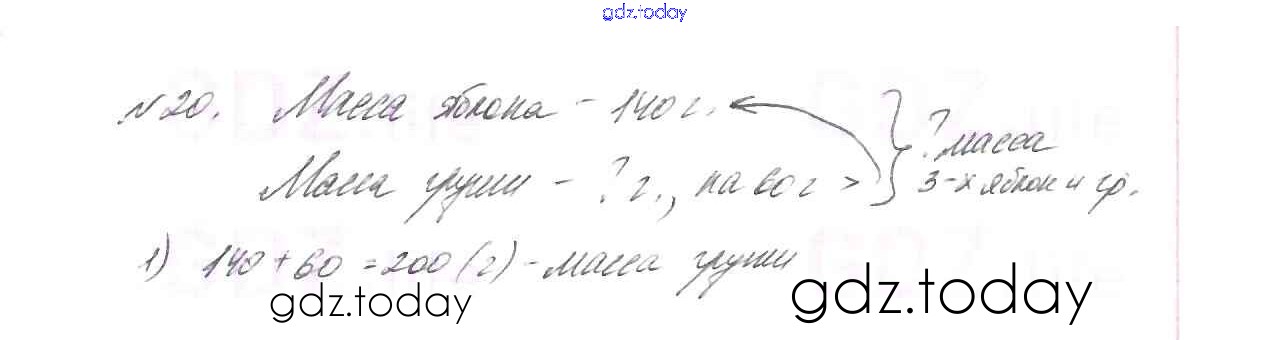 gdz.today
№20. Масса яблока - 140 г.
Масса груши - ? г., на 60 г >
? масса
3-х яблок и гр.
1) 140 + 60 = 200 (г) - масса груши
gdz.today
gdz.today